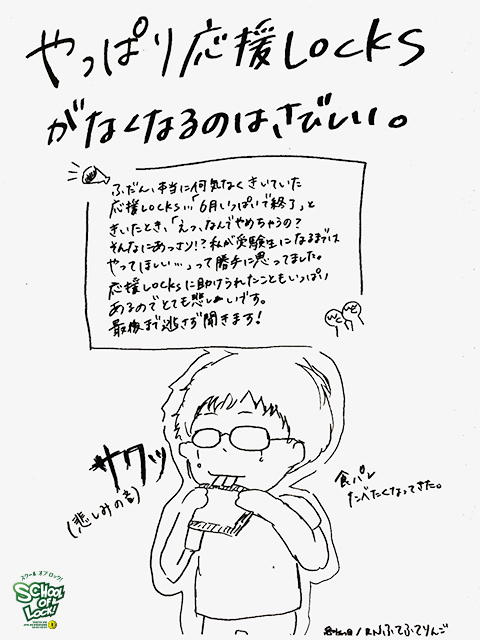 やっぱり応援LOCKS
がなくなるのは、さびしい。
ふだん、本当に何気なくきいていた
応援LOCKS…「6月いっぱいで終了」と
きいたとき、「えっ、なんでやめちゃうの?
そんなにあっさり!?私が受験生になるまでは
やってほしい…」って勝手に思ってました。
応援LOCKSに助けられたこともいっぱい
あるのでとても悲しいです。
最後まで逃さず聞きます!
サクッ
(悲しみの音)
食パン
たべたくなってきた。
スクール オブ ロック!
SCHOOL
OF
LOCK!
/RNふてふてりんご